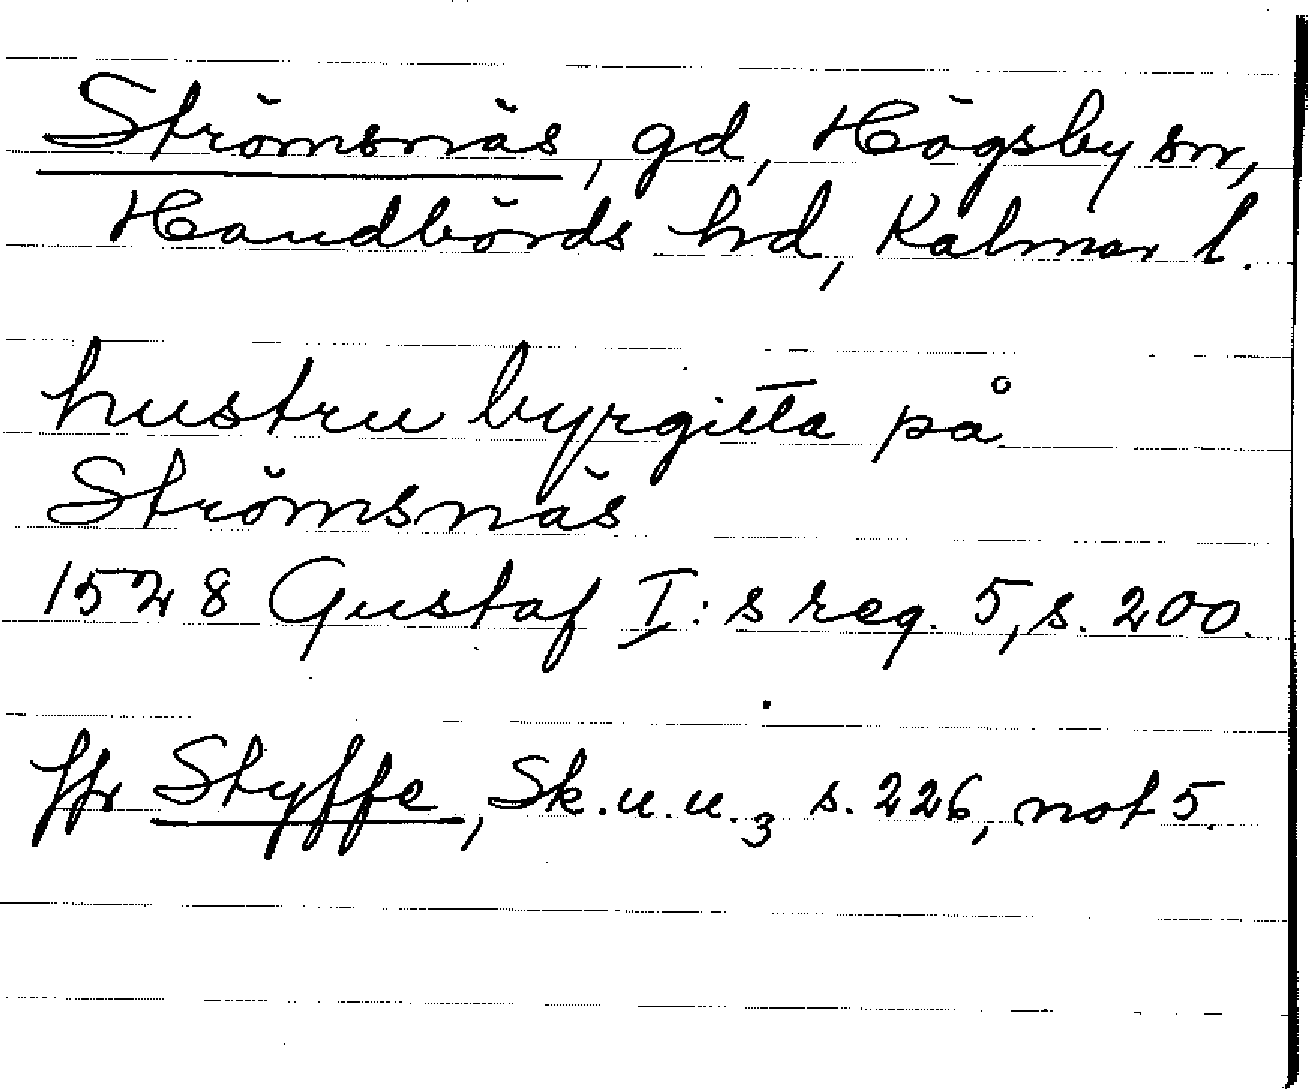 Strömsnäs, gd, Högsby sn,
Handbörds hd, Kalmar l.
hustru byrgitta på
Strömsnäs
1528 Gustaf I:s reg. 5, s. 200.
Jfr Styffe, Sk.u.u.3 s. 226, not 5.